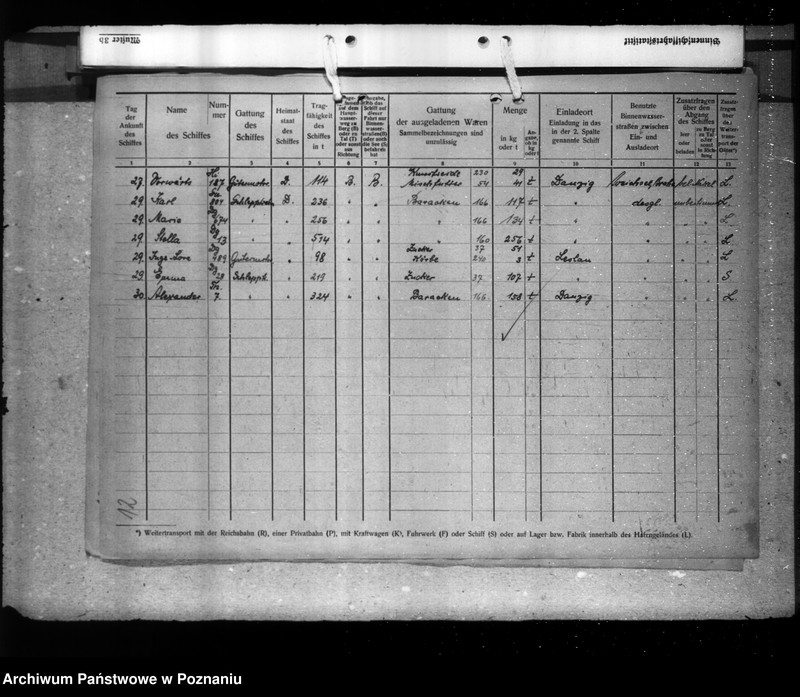 Muster 3b
Binnenschiffahrtsstatistik
Tag der Ankunft des Schiffes
Name des Schiffes
Nummer
Gattung des Schiffes
Heimatstaat des Schiffes
Tragfähigkeit des Schiffes in t
Gattung der ausgeladenen Waren Sammelbezeichnungen sind unzulässig
Menge in kg oder t
Angabe, ob in kg oder t
Einladeort Einladung in das in der 2. Spalte genannte Schiff
Benutzte Binnenwasserstraßen zwischen Ein- und Ausladeort
Zusatzfragen über den Abgang des Schiffes
leer oder beladen
zu Berg zu Tal oder sonst in Richtung
Zusatzfragen über den Weitertransport der Güter*)
1 2 3 4 5 6 7 8 9 10 11 12 13
27. Vorwärts 127 Gütermotor D. 114 B. B. 230 29
54 41 t Danzig L.
29. Karl Schleppkahn D. 236 " " Baracken 166 117 t " desgl. unbestimmt L
29. Maria 674 " " 256 " " " 166 134 t " " " " L
29 Stella 13 " " 574 " " " 160 256 t " " " " L
29. Inge-Lore 989 Gütermotor " 98 " " Zucker 37 51
Körbe 240 3 t Leslau " " " L
29 Emma 28 Schleppk. " 219 " " Zucker 37 107 t " " " " S
30. Alexander 7. " " 324 " " Baracken 166 158 t Danzig " " " L
12
*) Weitertransport mit der Reichsbahn (R), einer Privatbahn (P), mit Kraftwagen (K), Fuhrwerk (F) oder Schiff (S) oder auf Lager bzw. Fabrik innerhalb des Hafengeländes (L).
Archiwum Państwowe w Poznaniu